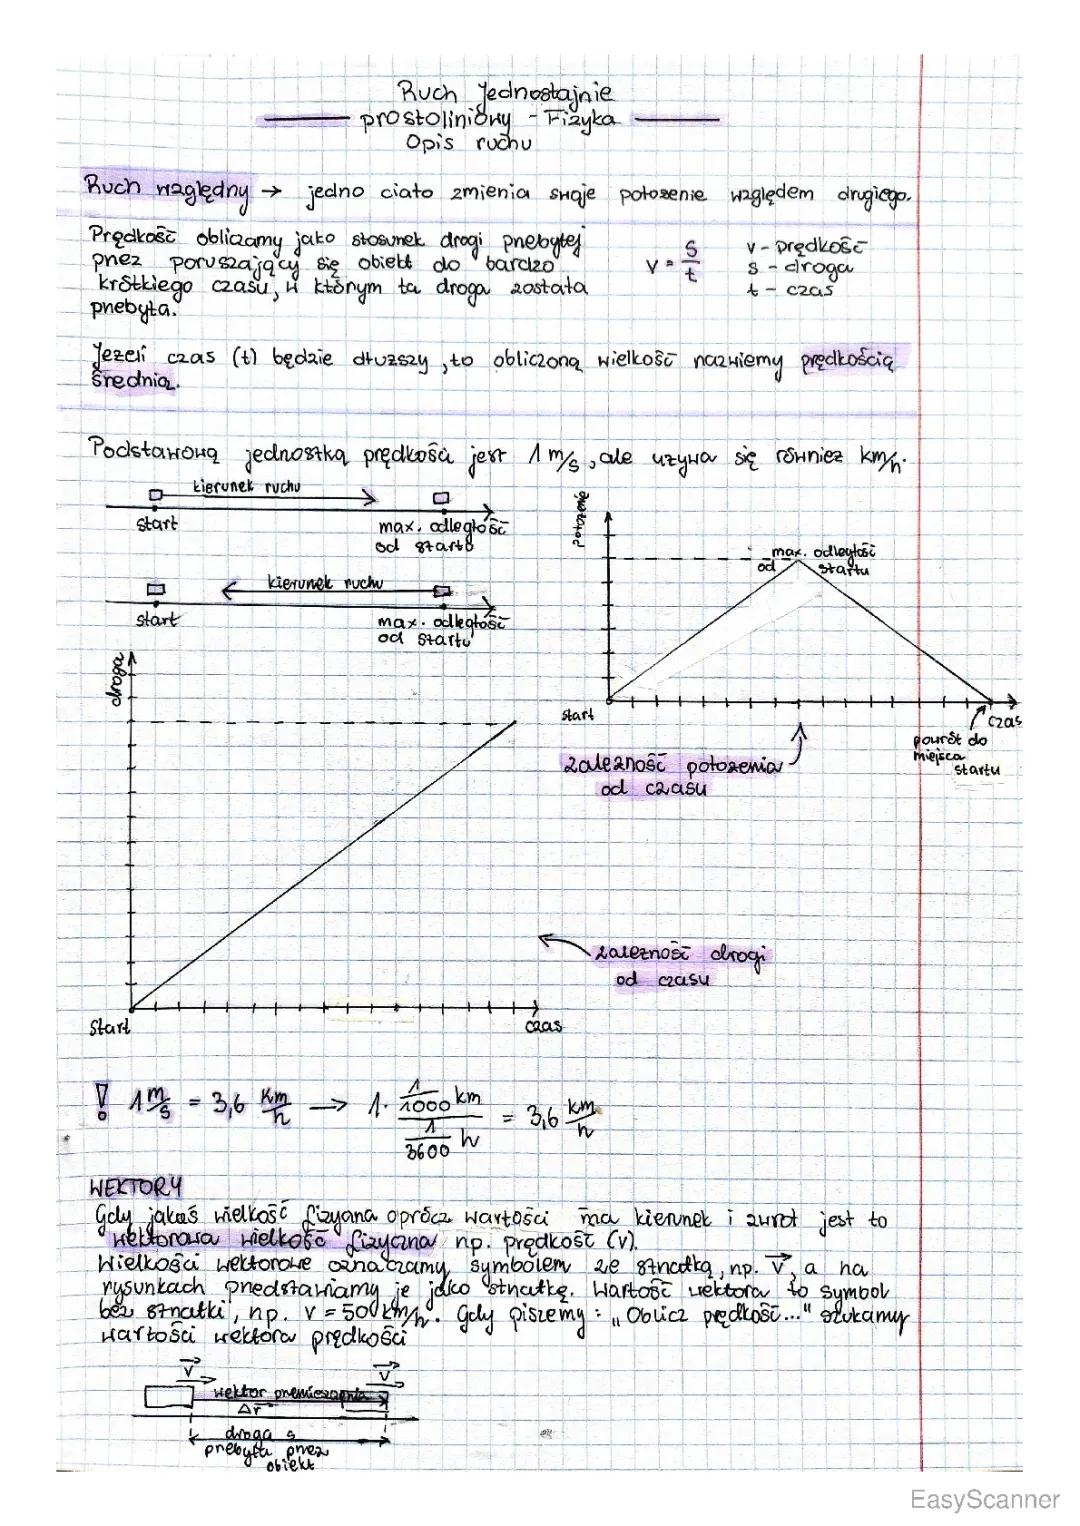 Ruch Jednostajnie
prostoliniowy - Fizyka
Opis ruchu
Ruch względny → jedno ciało zmienia swoje położenie względem drugiego.
Prędkość obliczamy jako stosunek drogi przebytej
przez poruszający się obiekt do bardzo
krótkiego czasu, w którym ta droga została
przebyta.
v = s/t
v - prędkość
s - droga
t - czas
Jeżeli czas (t) będzie dłuższy, to obliczoną wielkość nazwiemy prędkością
średnią.
Podstawową jednostką prędkości jest 1 m/s, ale używa się również km/h.
kierunek ruchu
start
max. odległość
od startu
kierunek ruchu
start
max. odległość
od startu
położenie
max. odległość
od startu
start
czas
powrót do
miejsca
startu
zależność położenia
od czasu
droga
zależność drogi
od czasu
Start
czas
! 1 m/s = 3,6 km/h → 1 · (1/1000 km)/(1/3600 h) = 3,6 km/h
WEKTORY
Gdy jakaś wielkość fizyczna oprócz wartości ma kierunek i zwrot jest to
wektorowa wielkość fizyczna np. prędkość (v).
Wielkości wektorowe oznaczamy symbolem ze strzałką, np. v⃗, a na
rysunkach przedstawiamy je jako strzałkę. Wartość wektora to symbol
bez strzałki, np. v = 50 km/h. Gdy piszemy: „Oblicz prędkość..." szukamy
wartości wektora prędkości
v⃗
v⃗
wektor przemieszczenia
Δr⃗
droga s
przebyta przez
obiekt
EasyScanner